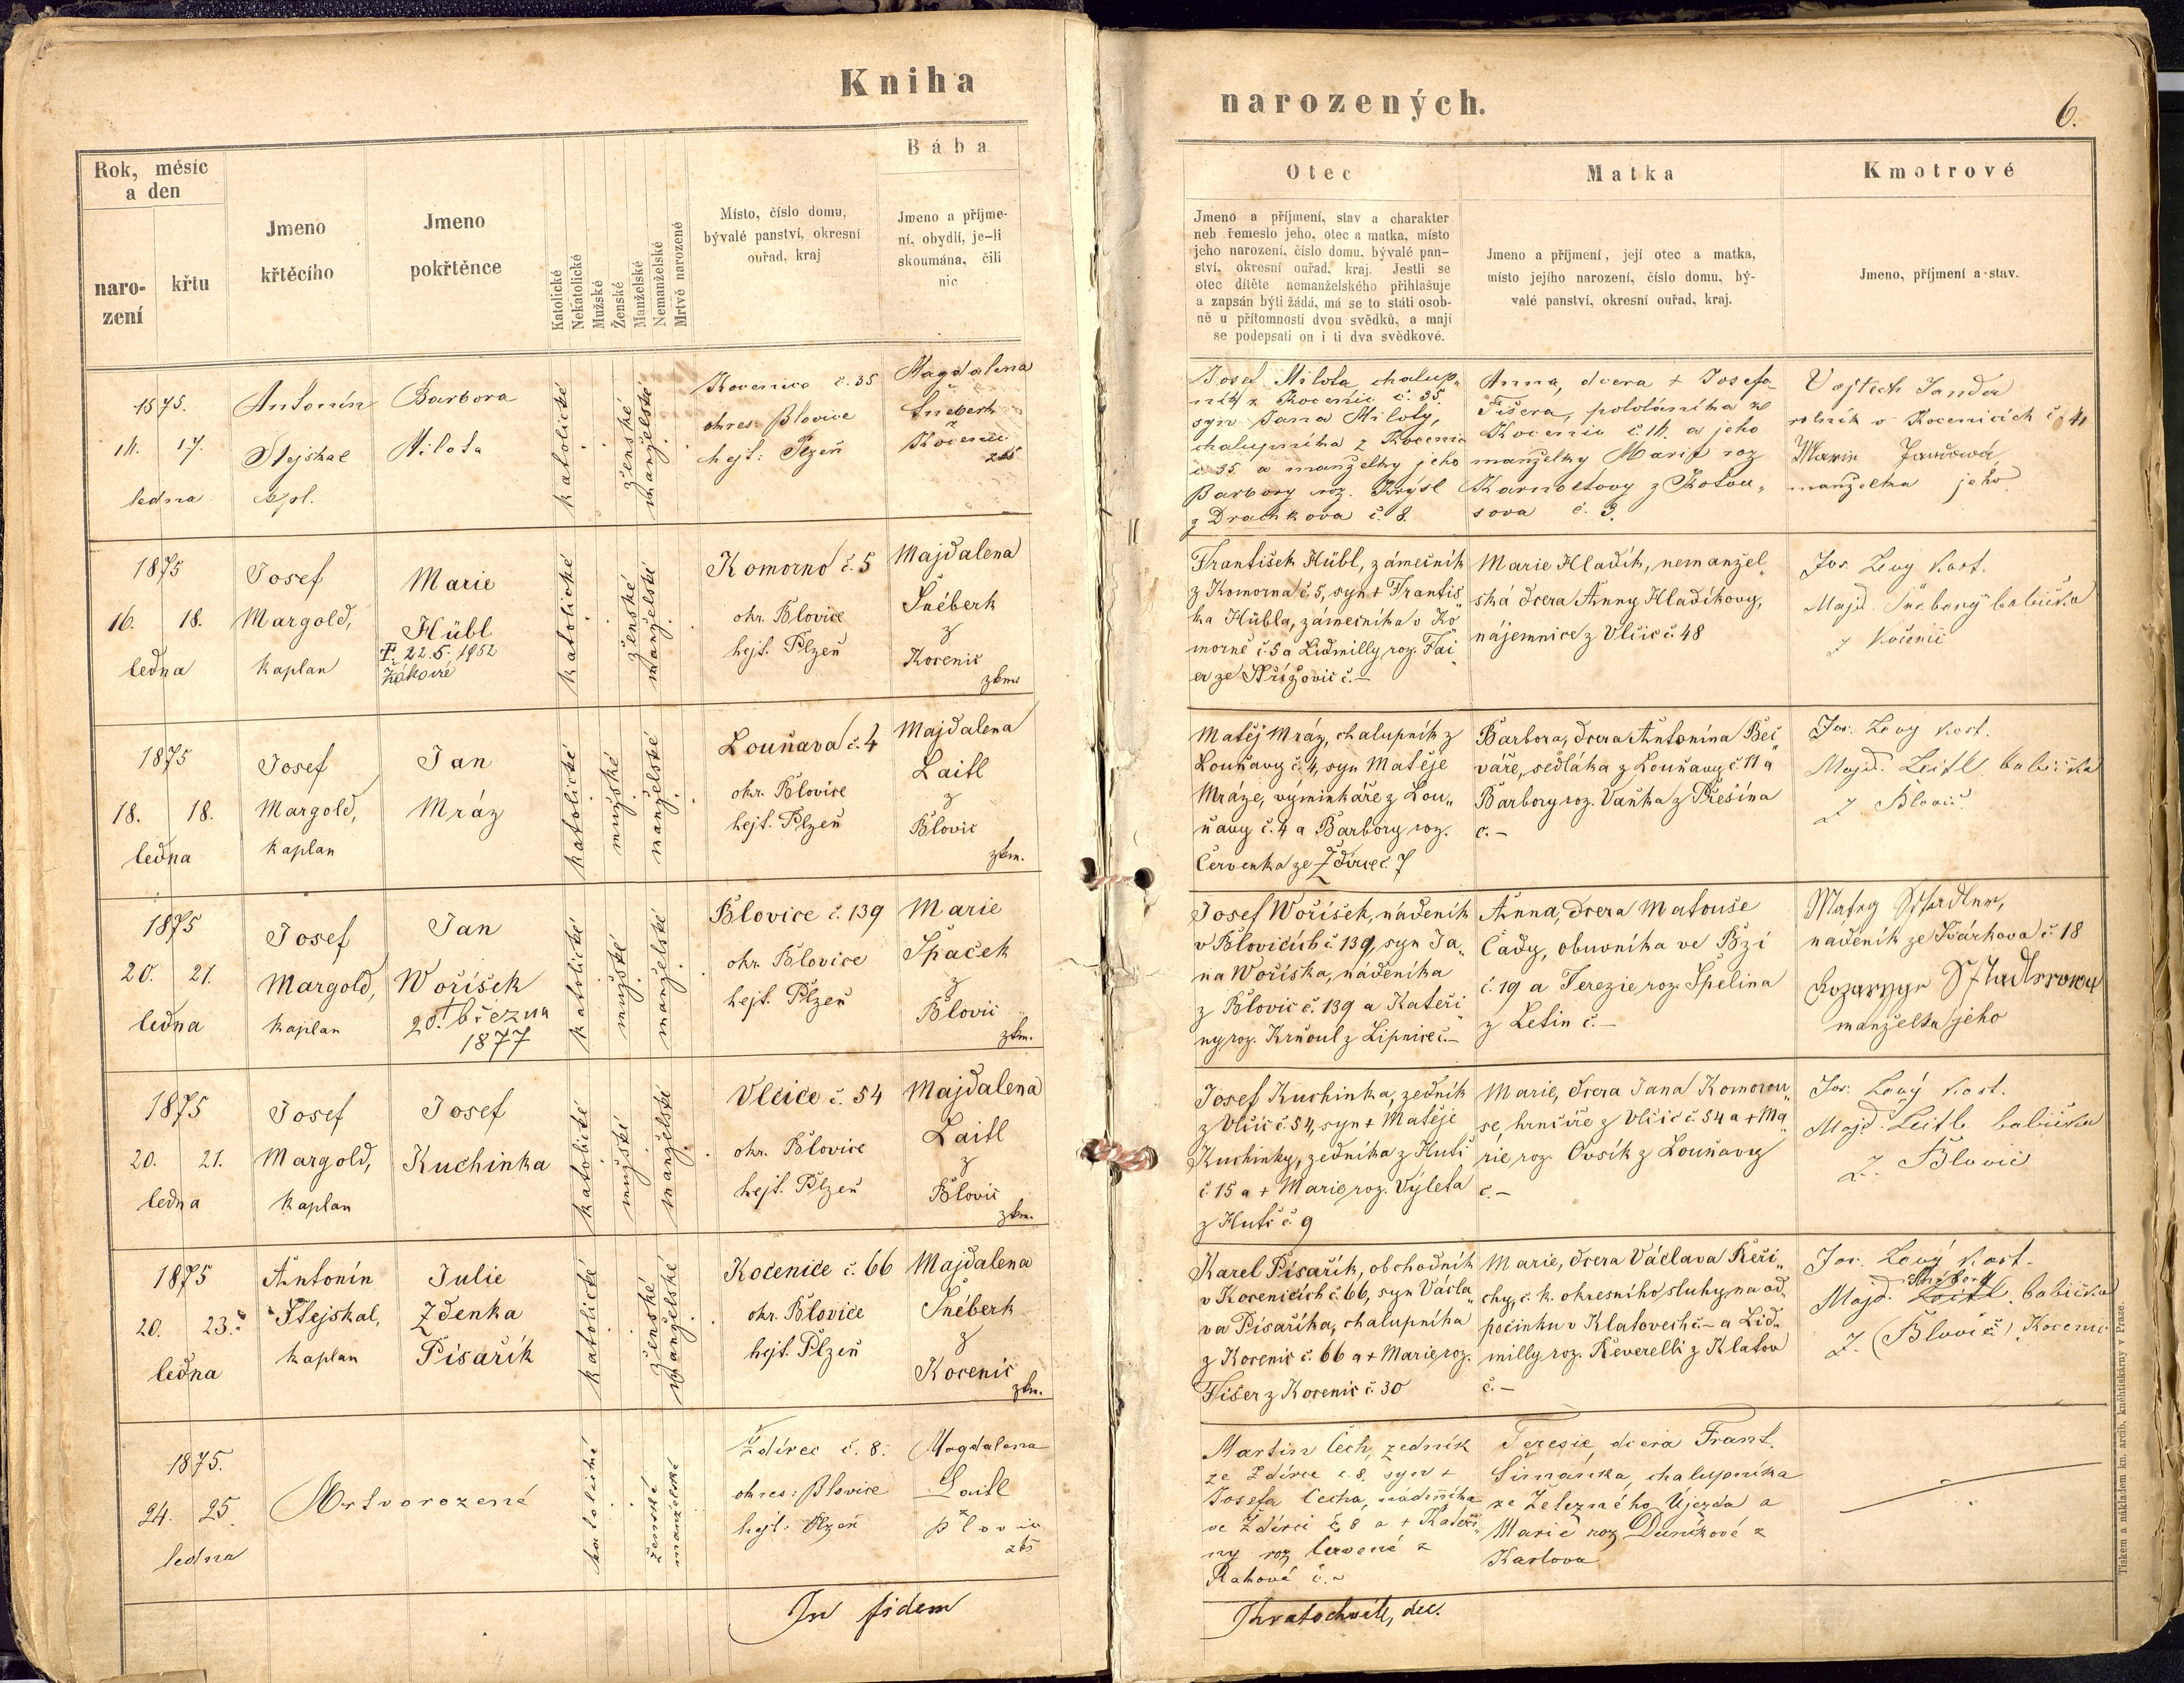 Kniha
narozených.
6.
Rok, měsíc
a den
naro-
zení
křtu
Jmeno
křtěcího
Jmeno
pokřtěnce
Katolické
Nekatolické
Mužské
Ženské
Manželské
Nemanželské
Mrtvě narozené
Místo, číslo domu,
bývalé panství, okresní
ouřad, kraj
Bába
Jmeno a příjme-
ní, obydlí, je-li
skoumána, čili
nic
Otec
Jmeno a příjmení, stav a charakter
neb řemeslo jeho, otec a matka, místo
jeho narození, číslo domu, bývalé pan-
ství, okresní ouřad, kraj. Jestli se
otec dítěte nemanželského přihlašuje
a zapsán býti žádá, má se to státi osob-
ně u přítomnosti dvou svědků, a mají
se podepsati on i ti dva svědkové.
Matka
Jmeno a příjmení, její otec a matka,
místo jejího narození, číslo domu, bý-
valé panství, okresní ouřad, kraj.
Kmotrové
Jmeno, příjmení a stav.
1875.
17.
ledna
Antonín
Stejskal
Barbora
Milota
katolické
ženské
manželské
Kocenice č. 35
okres: Blovice
hejt: Plzeň
Magdalena
Šneberk
Kocenic
Josef Milota, chalup„
ník z Kocenic č. 35.
syn Jana Miloty,
chalupníka z Kocenic
č 35 a manželky jeho
Barbory roz. Krýsl
z Drachkova č. 8.
Anna, dcera + Josefa
Fišera, pololáníka z
Kocenic č. 14. a jeho
manželky Marie roz
z Kotou„
sova č. 3.
Vojtech Janda
rolník v Kocenicích č. 41
Marie Jandová
manželka jeho
1875
16. 18.
ledna
Josef
Margold,
kaplan
Marie
Hübl
† 22.5. 1952
Žákavě
katolické
ženské
manželské
Komorno č. 5
okr. Blovice
hejt. Plzeň
Majdalena
Šnéberk
z
Kocenic
zkm.
František Hübl, zámečník
z Komorna č. 5, syn + Františ„
ka Hübla, zámečníka v Ko„
morně č. 5 a Lidmilly roz. Fai„
er ze Střížovic č. –
Marie Hladík, nemanžel„
ská dcera Anny Hladíkovy,
nájemnice z Vlčic č. 48
Jos. Levý kost.
Majd. Šneberg babička
z Kocenic
1875
18. 18.
ledna
Josef
Margold,
kaplan
Jan
Mráz
katolické
mužské
manželské
Louňava č. 4
okr. Blovice
hejt. Plzeň
Majdalena
Laitl
z
Blovic
zkm.
Matěj Mráz, chalupník z
Louňavy č. 4, syn Matěje
Mráze, výminkáře z Lou„
ňavy č. 4 a Barbory roz.
Červenka ze Ždírce č. 7
Barbora, dcera Antonína Beč„
váře, sedláka z Louňavy č. 11 a
Barbory roz. Vaňka z Přešína
č. –
Jos. Levý kost.
Majd. Leitl babička
z Blovic
1875
20. 21.
ledna
Josef
Margold,
kaplan
Jan
Woříšek
† 20. března
1877
katolické
mužské
manželské
Blovice č. 139
okr. Blovice
hejt. Plzeň
Marie
Špaček
z
Blovic
zkm.
Josef Woříšek, nádeník
v Blovicích č. 139, syn Ja„
na Woříška, nádeníka
z Blovic č. 139 a Kateři„
ny roz. Krňoul z Lipnice č. –
Anna, dcera Matouše
Čady, obuvníka ve Bzí
č. 19 a Terezie roz. Špelina
z Letin č. –
nádeník ze Svárkova č. 18
manželka jeho
1875
20. 21.
ledna
Josef
Margold,
kaplan
Josef
Kuchinka
katolické
mužské
manželské
Vlčice č. 54
okr. Blovice
hejt. Plzeň
Majdalena
Laitl
z
Blovic
zkm.
Josef Kuchinka, zedník
z Vlčic č. 54, syn + Matěje
Kuchinky, zedníka z Hutí
č. 15 a + Marie roz. Výleta
z Hutí č. 9
Marie, dcera Jana Komorou„
se, hrnčíře z Vlčic č. 54 a + Ma„
rie roz. Ovsík z Louňavy
č. –
Jos. Levý kost.
Majd. Leitl babička
z Blovic
1875
20. 23.
ledna
Antonín
Stejskal,
kaplan
Julie
Zdenka
Písařík
katolické
ženské
manželské
Kocenice č. 66
okr. Blovice
hejt. Plzeň
Majdalena
Šnéberk
z
Kocenic
zkm.
Karel Písařík, obchodník
v Kocenicích č. 66, syn Václa„
va Písaříka, chalupníka
z Kocenic č. 66 a + Marie roz.
Fišer z Kocenic č. 30
Marie, dcera Václava Řeři„
chy, c. k. okresního sluhy na od„
počinku v Klatovech č. – a Lid„
milly roz. Reverelli z Klatov
č. –
Jos. Levý kost.
Šneberg
Majd. Leitl babička
z (Blovic) Kocenic
1875.
24. 25.
ledna
Mrtvorozené
katolické
ženské
manželské
Ždírec č. 8.
okres: Blovice
hejt: Plzeň
Magdalena
Laitl
Blovic
Martin Čech, zedník
ze Ždírce č. 8. syn +
Josefa Čecha, nádeníka
ve Ždírci č. 8 a + Kateři„
ny roz. Červené z
Rakové č. –
Terezie, dcera Frant.
Šimánka, chalupníka
ze Železného Újezda a
Marie roz. Daníkové z
Karlova
In fidem
Kratochvíl, dec.
Tiskem a nákladem kn. arcib. knihtiskárny v Praze.